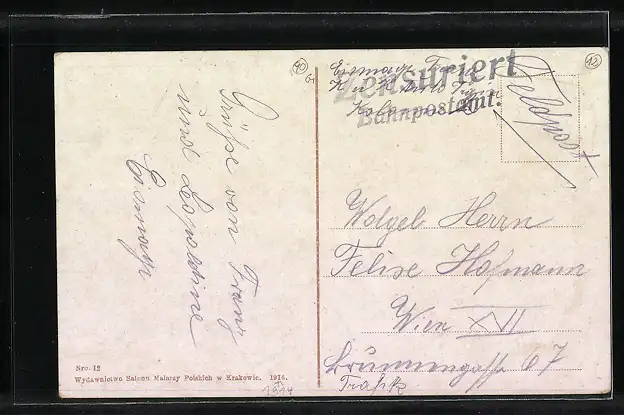 Grüße von Franz
und Leopoldine
Eismayr
Eismayr Franz
K u K
Zensuriert
Bahnpostamt.
Feldpost
Wolgeb Herrn
Felixe Hofmann
Wien XVII
Brunnengasse 67
Trafik
Nro. 12
Wydawnictwo Salonu Malarzy Polskich w Krakowie. 1914.
1914
40
12